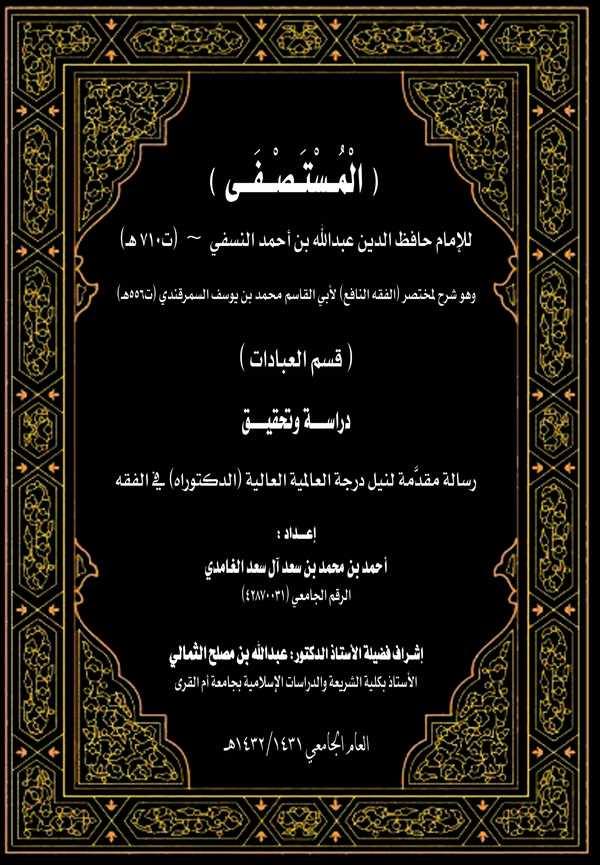 ( الْمُسْتَصْفَى )
للإمام حافظ الدين عبدالله بن أحمد النسفي ~ (ت٧١٠ هـ)
وهو شرح لمختصر (الفقه النافع) لأبي القاسم محمد بن يوسف السمرقندي (ت٥٥٦هـ)
( قسم العبادات )
دراسـة وتحقيـق
رسالة مقدَّمة لنيل درجة العالمية العالية (الدكتوراه) في الفقه
إعـداد :
أحمد بن محمد بن سعد آل سعد الغامدي
الرقم الجامعي (٤٢٨٧٠٠٣١)
إشراف فضيلة الأستاذ الدكتور: عبدالله بن مصلح الثمالي
الأستاذ بكلية الشريعة والدراسات الإسلامية بجامعة أم القرى
العام الجامعي ١٤٣١/١٤٣٢هـ